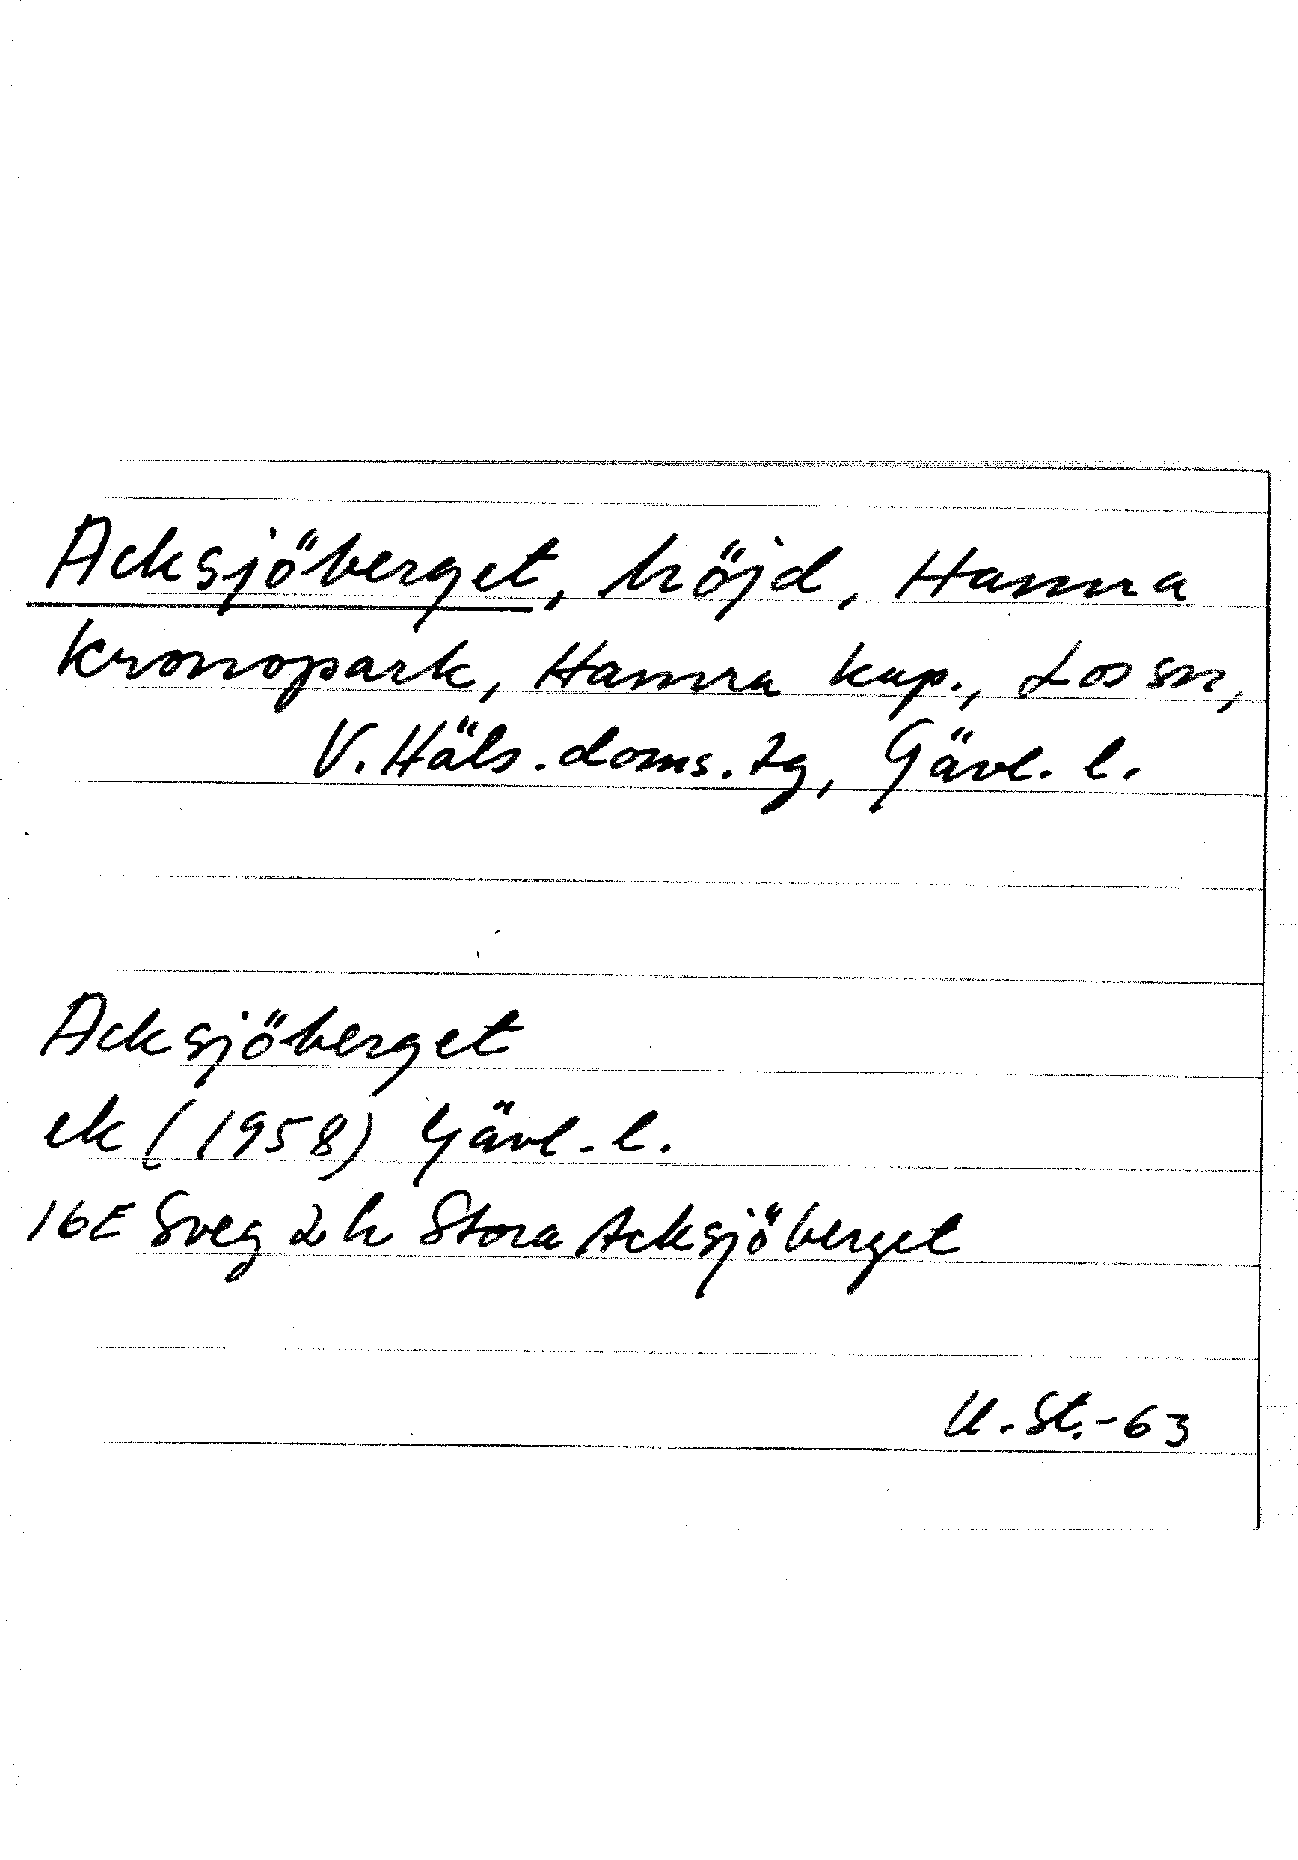 Acksjöberget, höjd, Hamra
kronopark, Hamra kap., Los sn,
V. Häls. doms. tg, Gävl. l.
Acksjöberget
ek (1958) Gävl. l.
16E Sveg 2h Stora Acksjöberget
U. St.-63